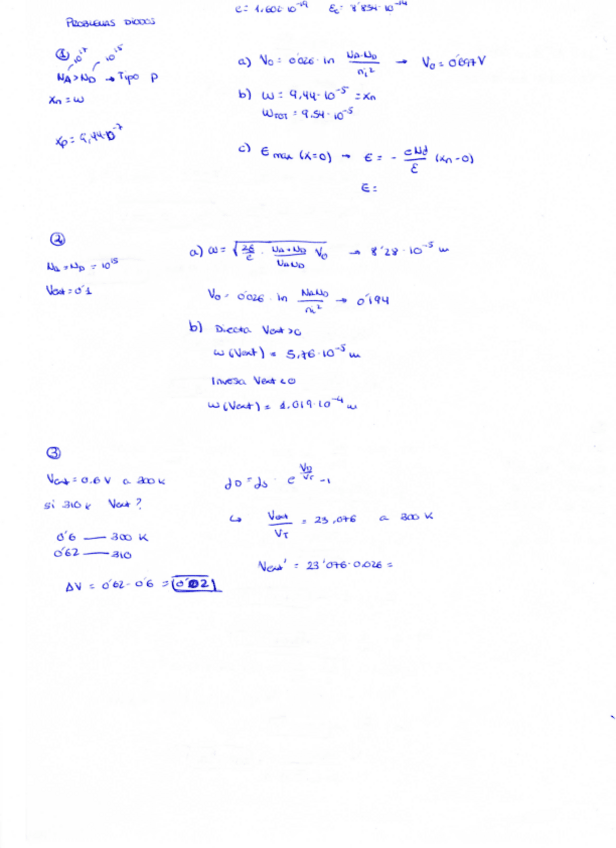 e = 1,602·10⁻¹⁹ Eₒ = 8'854·10⁻¹⁴
PROBLEMAS DIODOS
①
10¹⁷ 10¹⁵
NA > ND → Tipo P
xn = ω
xp = 9,44·10⁻⁷
a) Vo = 0'026 · ln NA·ND / ni² → Vo = 0'697 V
b) ω = 9,44·10⁻⁵ = xn
ωTOT = 9,54·10⁻⁵
c) Є max (x=0) → Є = - eNd / ε (xn - 0)
Є =
②
NA = ND = 10¹⁵
Vext = 0'1
a) ω = √(2ε / e · NA + ND / NA ND Vo) → 8'28·10⁻⁵ m
Vo = 0'026 · ln NA ND / ni² → 0'194
b) Directa Vext > 0
ω (Vext) = 5,76·10⁻⁵ m
Inversa Vext < 0
ω (Vext) = 1,019·10⁻⁴ m
③
Vext = 0.6 V a 300 K
si 310 K Vext ?
0'6 — 300 K
0'62 — 310
ΔV = 0'62 - 0'6 = 0'02
Jo = Js · e VD / VT - 1
↳ Vext / VT = 23,076 a 300 K
Vext' = 23'076·0.026 =